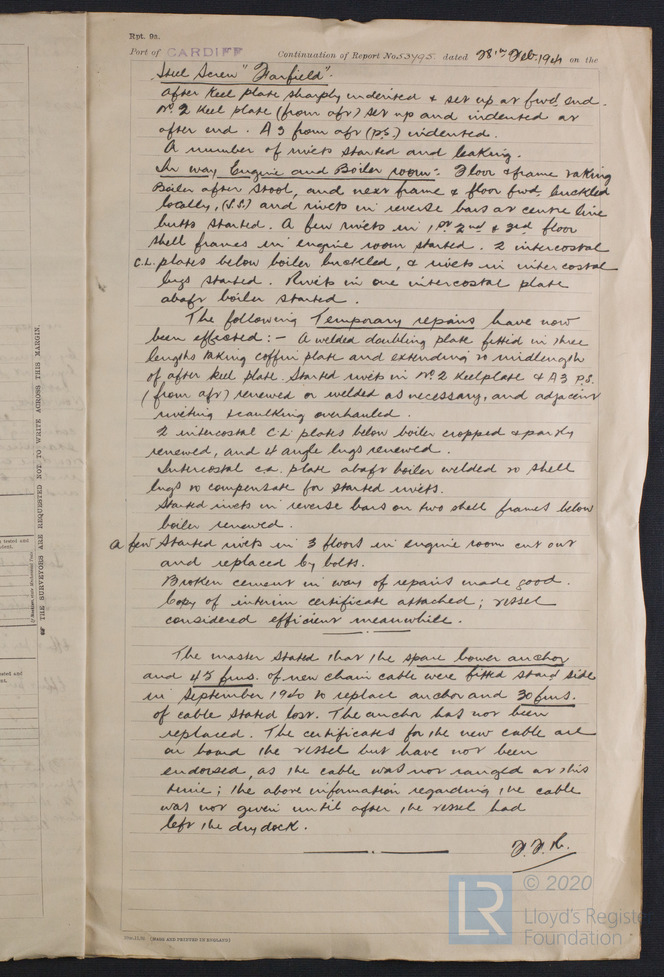 Rpt. 9a.
Port of CARDIFF Continuation of Report No. 53795 dated 28th Feb. 1941 on the
Steel Screw "Farfield".
After keel plate sharply indented & set up at fwd. end.
No. 2 keel plate (from aft) set up and indented at
after end. A 3 from aft (P.S.) indented.
A number of rivets started and leaking.
In way Engine and Boiler room:- Floor & frame taking
Boiler after stool, and next frame & floor fwd. buckled
locally, (S.S.) and rivets in reverse bars at centre line
butts started. A few rivets in 1st 2nd & 3rd floor
shell frames in engine room started. 2 intercostal
C.L. plates below boiler buckled, & rivets in intercostal
lugs started. Rivets in one intercostal plate
abaft boiler started.
The following Temporary repairs have now
been effected:- A welded doubling plate fitted in three
lengths taking coffin plate and extending to midlength
of after keel plate. Started rivets in No. 2 keelplate & A3 P.S.
(from aft) renewed or welded as necessary, and adjacent
riveting & caulking overhauled.
2 intercostal C.L. plates below boiler cropped & partly
renewed, and 4 angle lugs renewed.
Intercostal C.L. plate abaft boiler welded to shell
lugs to compensate for started rivets.
Started rivets in reverse bars on two shell frames below
boiler renewed.
A few Started rivets in 3 floors in engine room cut out
and replaced by bolts.
Broken cement in way of repairs made good.
Copy of interim certificate attached; vessel
considered efficient meanwhile.
The master stated that the spare bower anchor
and 45 fms. of new chain cable were fitted starbd side
in September 1940 to replace anchor and 30 fms.
of cable stated lost. The anchor has not been
replaced. The certificates for the new cable are
on board the vessel but have not been
endorsed, as the cable was not ranged at this
time; the above information regarding the cable
was not given until after the vessel had
left the dry dock.
[MADE AND PRINTED IN ENGLAND]
THE SURVEYORS ARE REQUESTED NOT TO WRITE ACROSS THIS MARGIN.
LR
© 2020
Lloyd's Register
Foundation